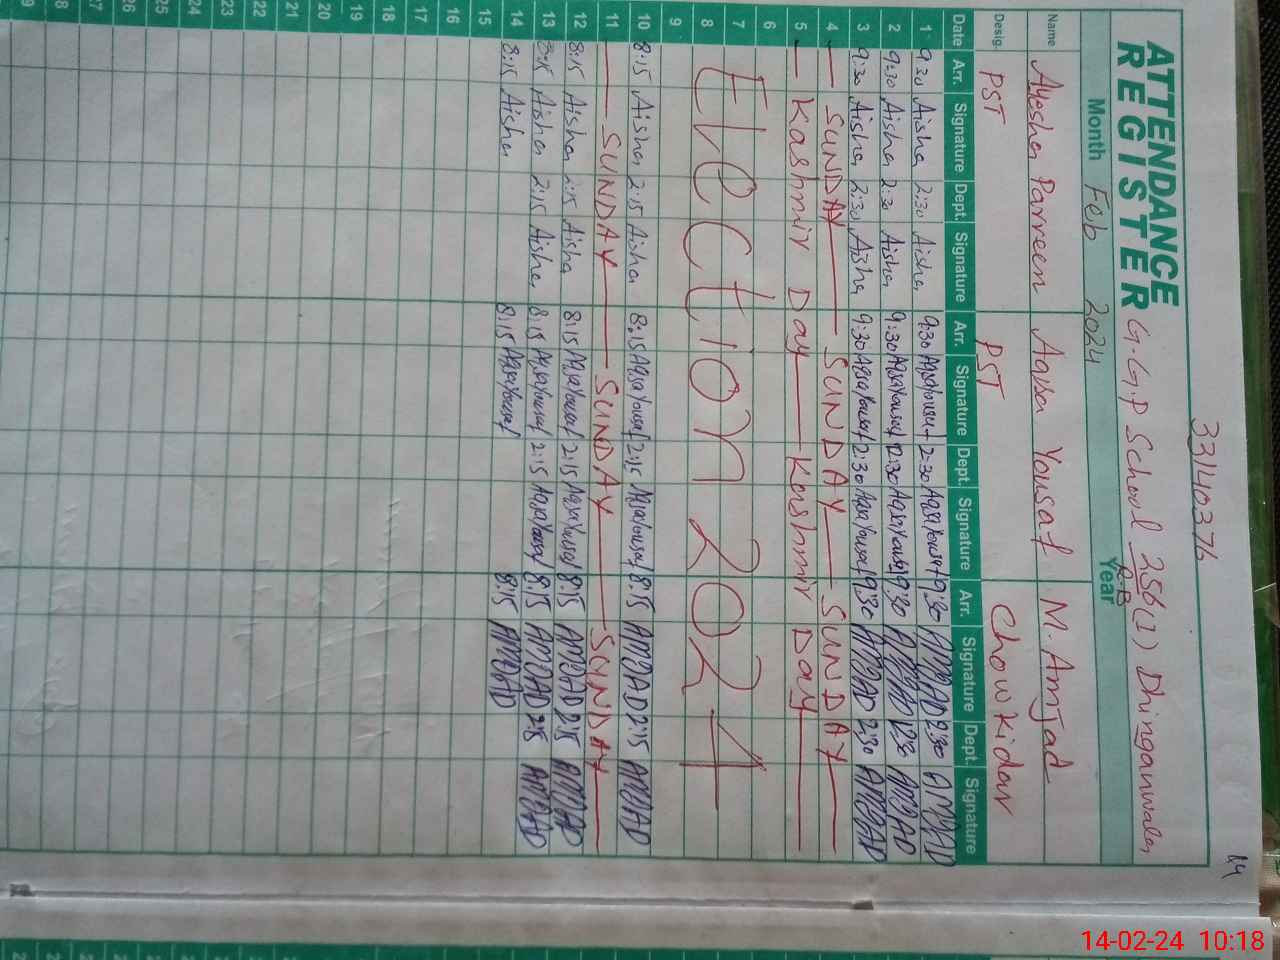 33140376
14
ATTENDANCE
REGISTER
G.G.P School 256(1) Dhinganwala
R.B
Month Feb 2024 Year
Name Ayesha Parveen Aqsa Yousaf M. Amjad
Desig. PST PST Chowkidar
Date Arr. Signature Dept. Signature Arr. Signature Dept. Signature Arr. Signature Dept. Signature
1 9:30 Aisha 2:30 Aisha 9:30 Aqsa Yousaf 2:30 Aqsa Yousaf 9:30 AMJAD 2:30 AMJAD
2 9:30 Aisha 2:30 Aisha 9:30 Aqsa Yousaf 2:30 Aqsa Yousaf 9:30 AMJAD 2:30 AMJAD
3 9:30 Aisha 2:30 Aisha 9:30 Aqsa Yousaf 2:30 Aqsa Yousaf 9:30 AMJAD 2:30 AMJAD
4 SUNDAY SUNDAY SUNDAY
5 Kashmir Day Kashmir Day
6
7
8 Election 2024
9
10 8:15 Aisha 2:15 Aisha 8:15 Aqsa Yousaf 2:15 Aqsa Yousaf 8:15 AMJAD 2:15 AMJAD
11 SUNDAY SUNDAY SUNDAY
12 8:15 Aisha 2:15 Aisha 8:15 Aqsa Yousaf 2:15 Aqsa Yousaf 8:15 AMJAD 2:15 AMJAD
13 8:15 Aisha 2:15 Aisha 8:15 Aqsa Yousaf 2:15 Aqsa Yousaf 8:15 AMJAD 2:15 AMJAD
14 8:15 Aisha 8:15 Aqsa Yousaf 8:15 AMJAD
15
16
17
18
19
20
21
22
23
24
25
26
27
28
29
14-02-24 10:18